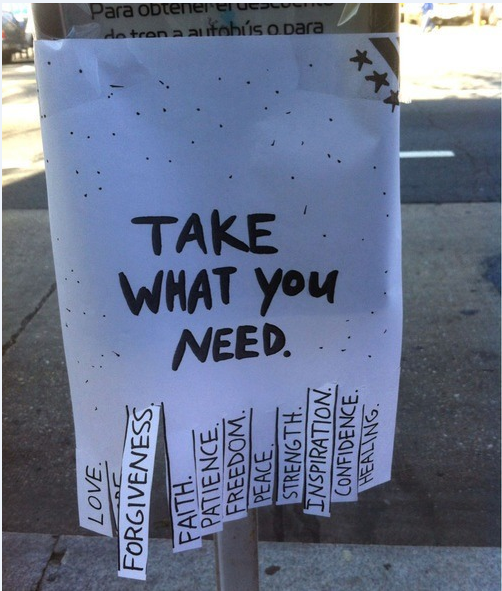 Para obtener el descuento
de tren a autobús o para
TAKE
WHAT YOU
NEED.
LOVE
FORGIVENESS.
FAITH.
PATIENCE.
FREEDOM.
PEACE.
STRENGTH.
INSPIRATION.
CONFIDENCE.
HEALING.